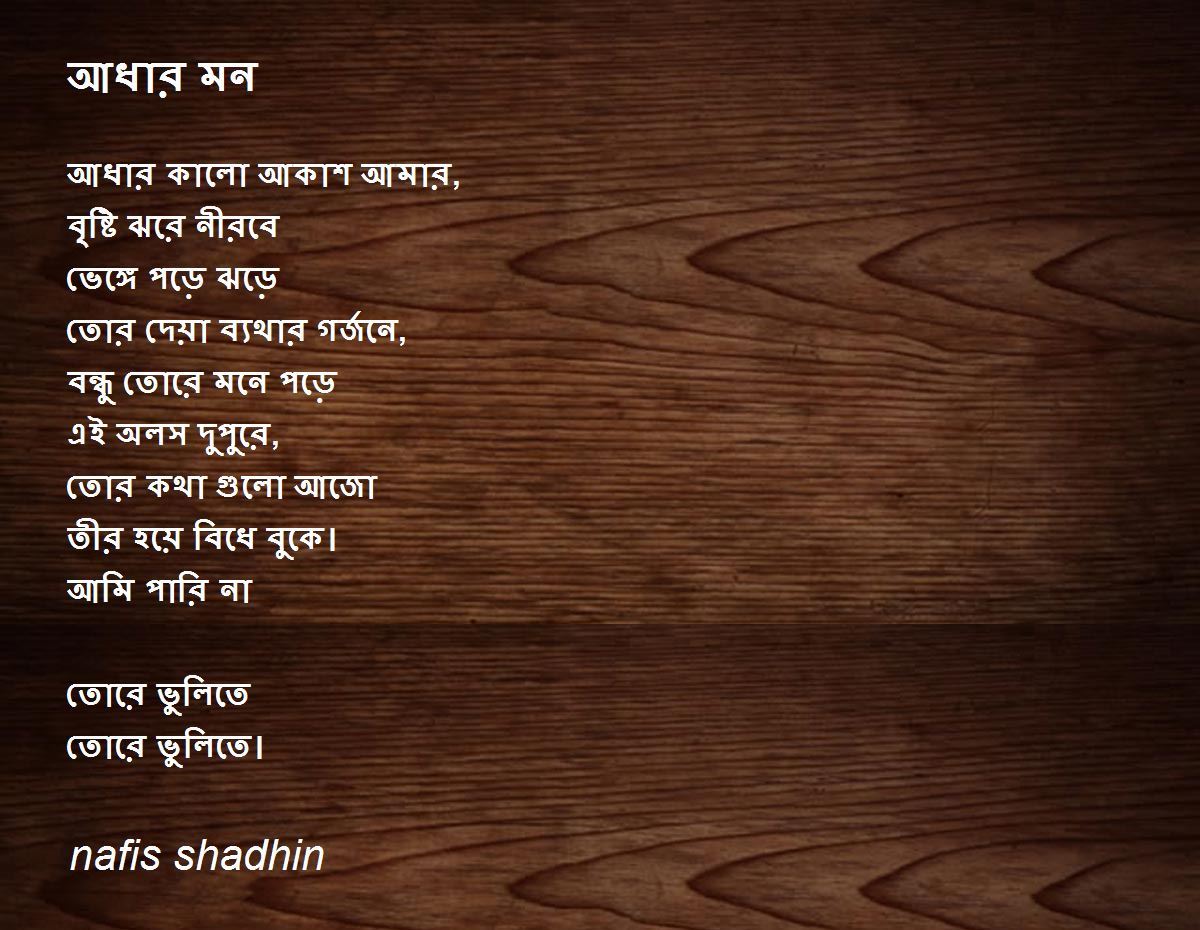 আধার মন
আধার কালো আকাশ আমার,
বৃষ্টি ঝরে নীরবে
ভেঙ্গে পড়ে ঝড়ে
তোর দেয়া ব্যথার গর্জনে,
বন্ধু তোরে মনে পড়ে
এই অলস দুপুরে,
তোর কথা গুলো আজো
তীর হয়ে বিধে বুকে।
আমি পারি না
তোরে ভুলিতে
তোরে ভুলিতে।
nafis shadhin